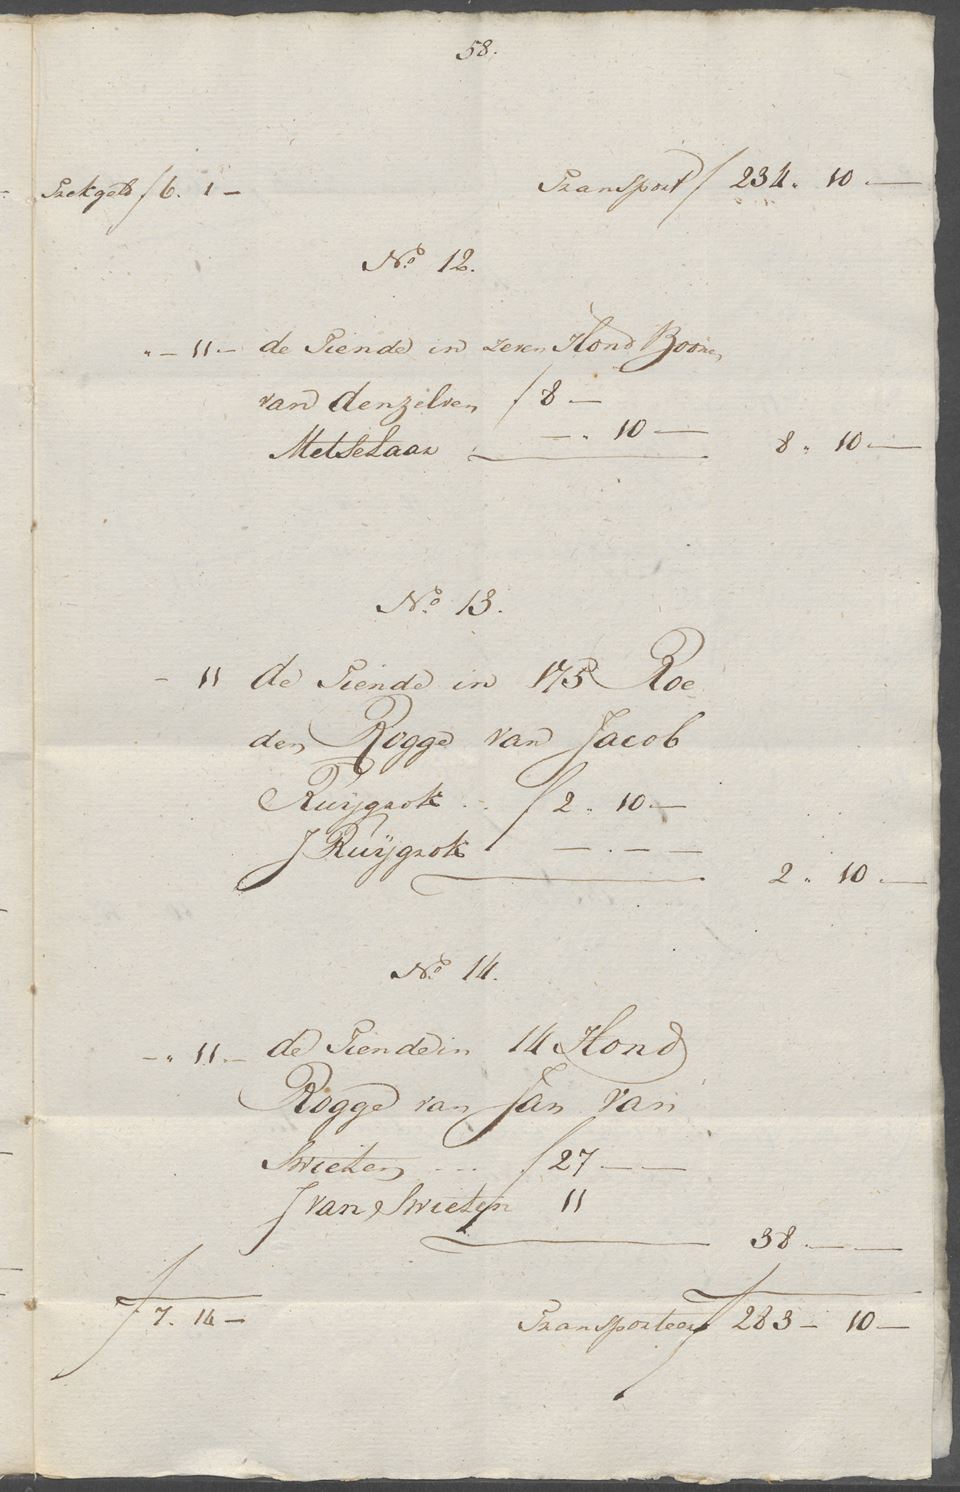 58.
Trekgeld f 6. 1 — Transport f 234 " 10 —
No. 12.
" — 11 — de Tiende in zeven Hond Boone,
van denzelven f 8 —
Metselaar — " 10 — 8 " 10 —
No. 13.
— 11 de Tiende in 175 Roe
den Rogge van Jacob
Ruijgrok .. f 2 " 10 —
J Ruijgrok — . — —
2 " 10 —
No. 14.
— " 11 — de Tiende in 14 Hond
Rogge van Jan van
Swieten ... f 27 — —
J van Swieten 11
38 — —
f 7. 14 — Transporteere f 283 — 10 —